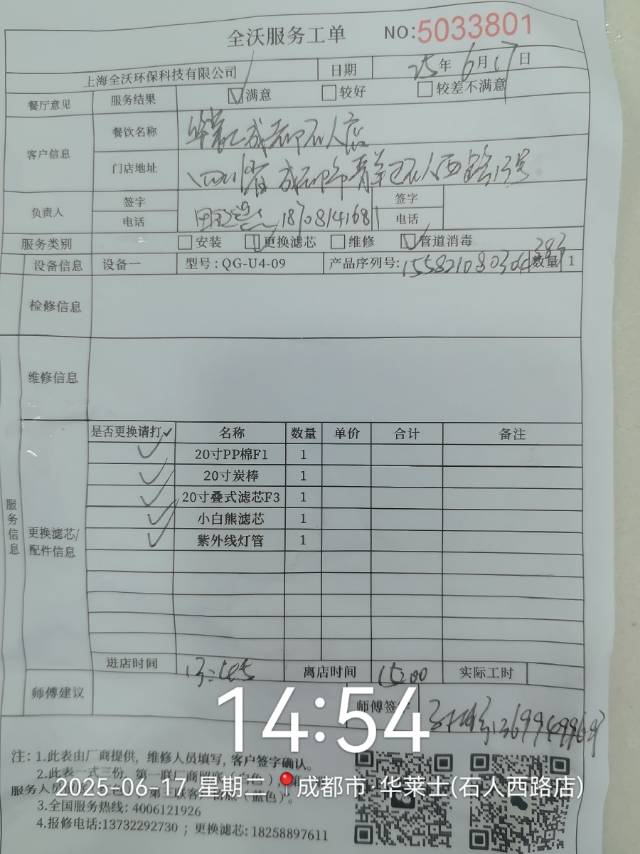 全沃服务工单 NO:5033801
上海全沃环保科技有限公司 日期 25年6月17日
餐厅意见 服务结果 ☑满意 □较好 □较差不满意
客户信息 餐饮名称 成都石人店
门店地址 四川省成都市青羊区石人西路13号
负责人 签字 签字
电话 电话
服务类别 □安装 ☑更换滤芯 □维修 ☑管道消毒
设备信息 设备一 型号:QG-U4-09 产品序列号: 数量 1
检修信息
维修信息
服务信息
更换滤芯/配件信息
是否更换请打✓ 名称 数量 单价 合计 备注
✓ 20寸PP棉F1 1
✓ 20寸炭棒 1
✓ 20寸叠式滤芯F3 1
✓ 小白熊滤芯 1
✓ 紫外线灯管 1
进店时间 离店时间 15:00 实际工时
师傅建议 师傅签
14:54
注: 1.此表由厂商提供，维修人员填写，客户签字确认。
2.此表一式三份，第一联厂商
服务人
2025-06-17 星期二 成都市·华莱士(石人西路店)
3.全国服务热线: 4006121926
4.报修电话:13732292730 ; 更换滤芯: 18258897611